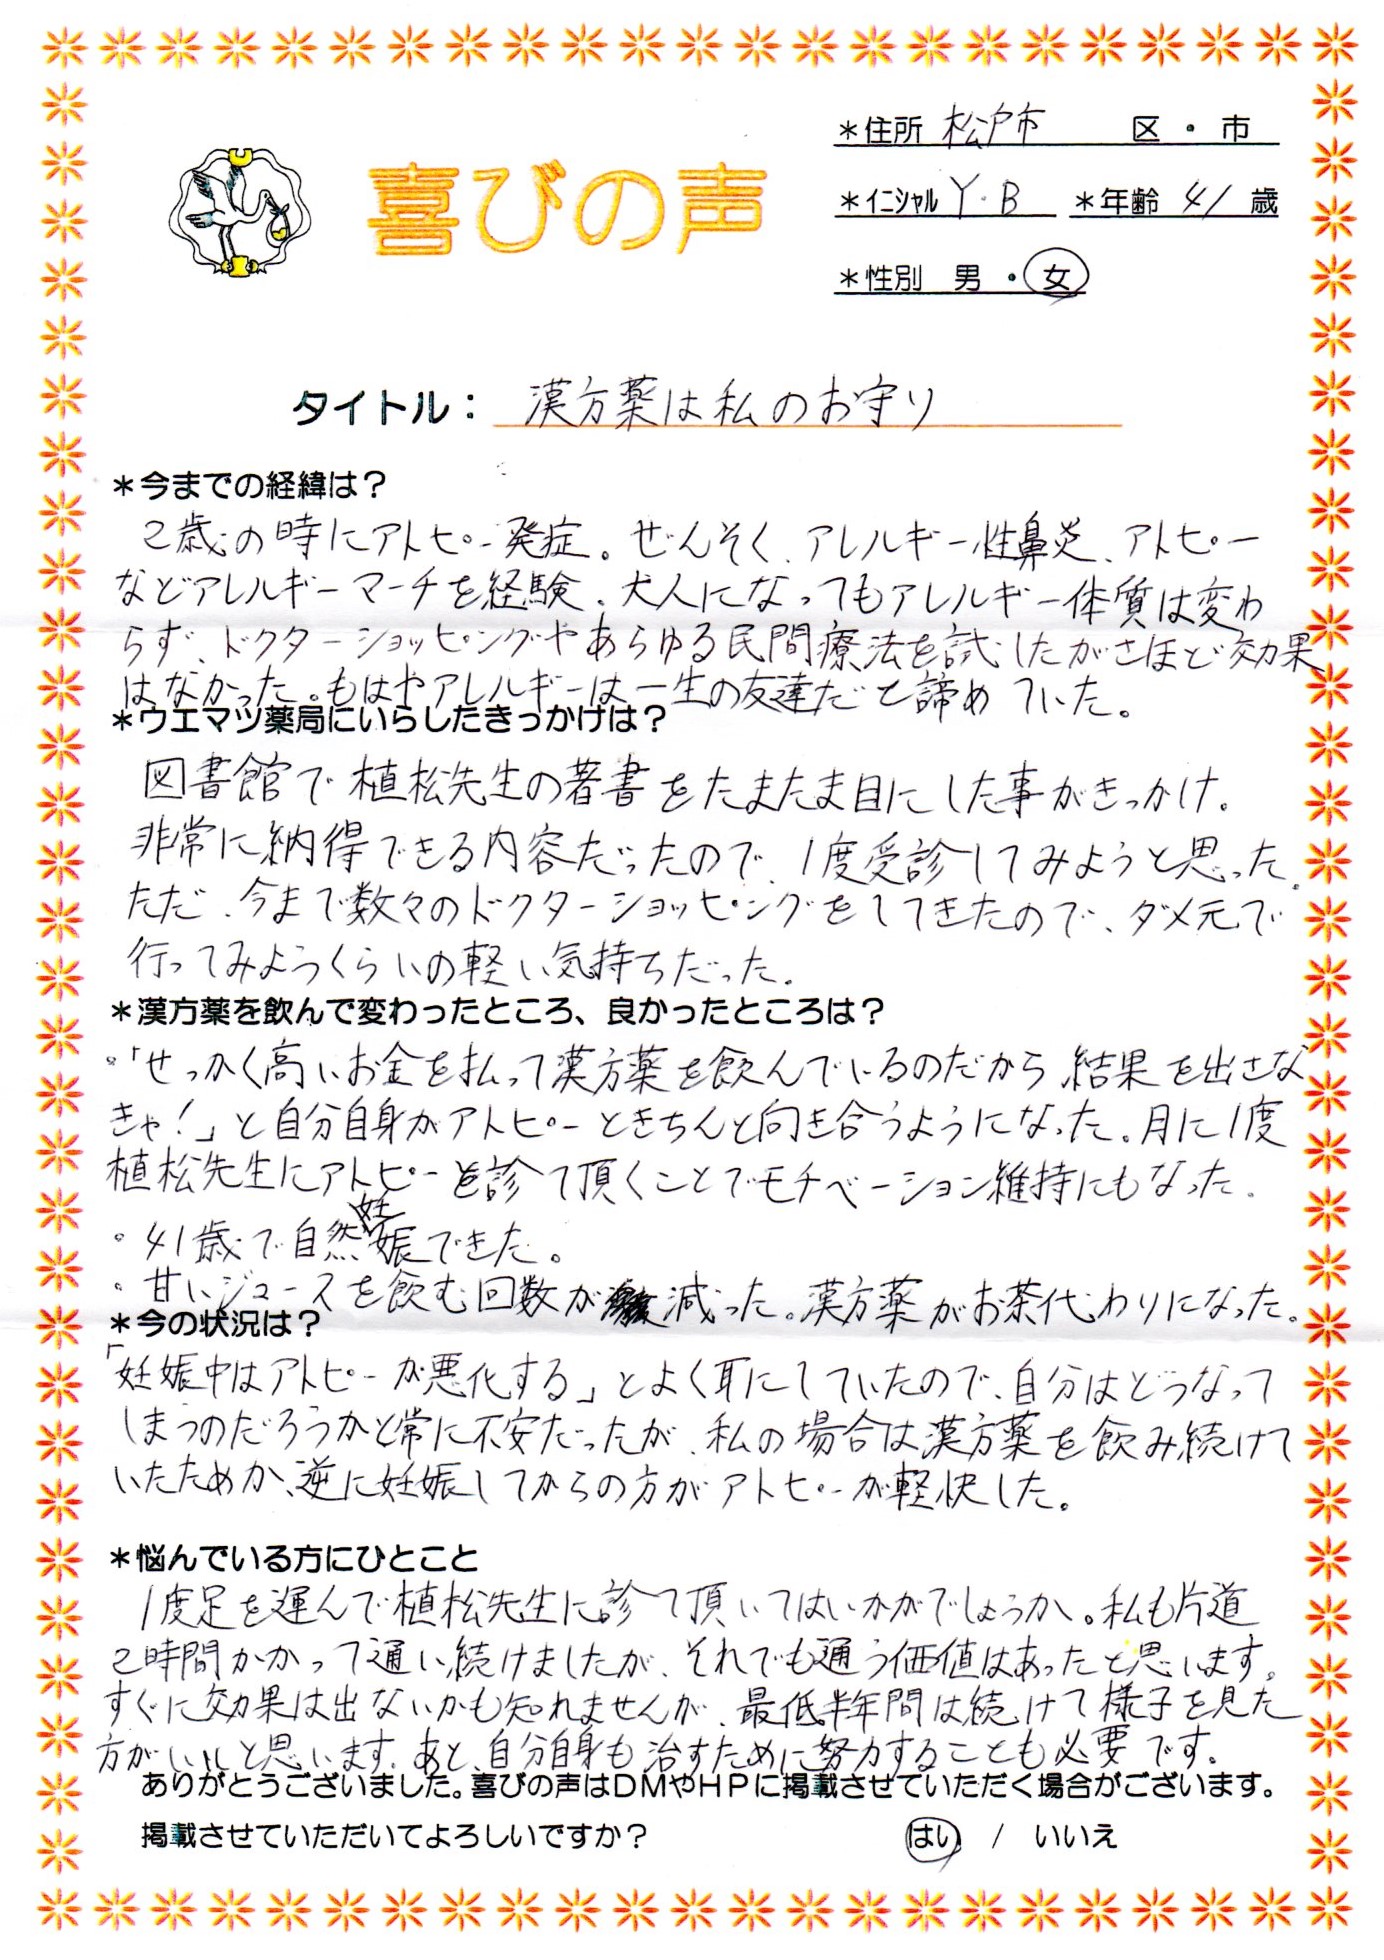 喜びの声
＊住所 松戸市 区・市
＊イニシャル Y・B ＊年齢 41 歳
＊性別 男・女
タイトル： 漢方薬は私のお守り
＊今までの経緯は？
2歳の時にアトピー発症。ぜんそく、アレルギー性鼻炎、アトピー
などアレルギーマーチを経験。大人になってもアレルギー体質は変わ
らず、ドクターショッピングやあらゆる民間療法を試したがさほど効果
はなかった。もはやアレルギーは一生の友達だと諦めていた。
＊ウエマツ薬局にいらしたきっかけは？
図書館で植松先生の著書をたまたま目にした事がきっかけ。
非常に納得できる内容だったので、1度受診してみようと思った。
ただ、今まで数々のドクターショッピングをしてきたので、ダメ元で
行ってみようくらいの軽い気持ちだった。
＊漢方薬を飲んで変わったところ、良かったところは？
・「せっかく高いお金を払って漢方薬を飲んでいるのだから、結果を出さな
きゃ！」と自分自身がアトピーときちんと向き合うようになった。月に1度
植松先生にアトピーを診て頂くことでモチベーション維持にもなった。
・41歳で自然妊娠できた。
・甘いジュースを飲む回数が減った。漢方薬がお茶代わりになった。
＊今の状況は？
「妊娠中はアトピーが悪化する」とよく耳にしていたので、自分はどうなって
しまうのだろうかと常に不安だったが、私の場合は漢方薬を飲み続けて
いたためか、逆に妊娠してからの方がアトピーが軽快した。
＊悩んでいる方にひとこと
1度足を運んで植松先生に診て頂いてはいかがでしょうか。私も片道
2時間かかって通い続けましたが、それでも通う価値はあったと思います。
すぐに効果は出ないかも知れませんが、最低半年間は続けて様子を見た
方がいいと思います。あと、自分自身も治すために努力することも必要です。
ありがとうございました。喜びの声はDMやHPに掲載させていただく場合がございます。
掲載させていただいてよろしいですか？ はい / いいえ